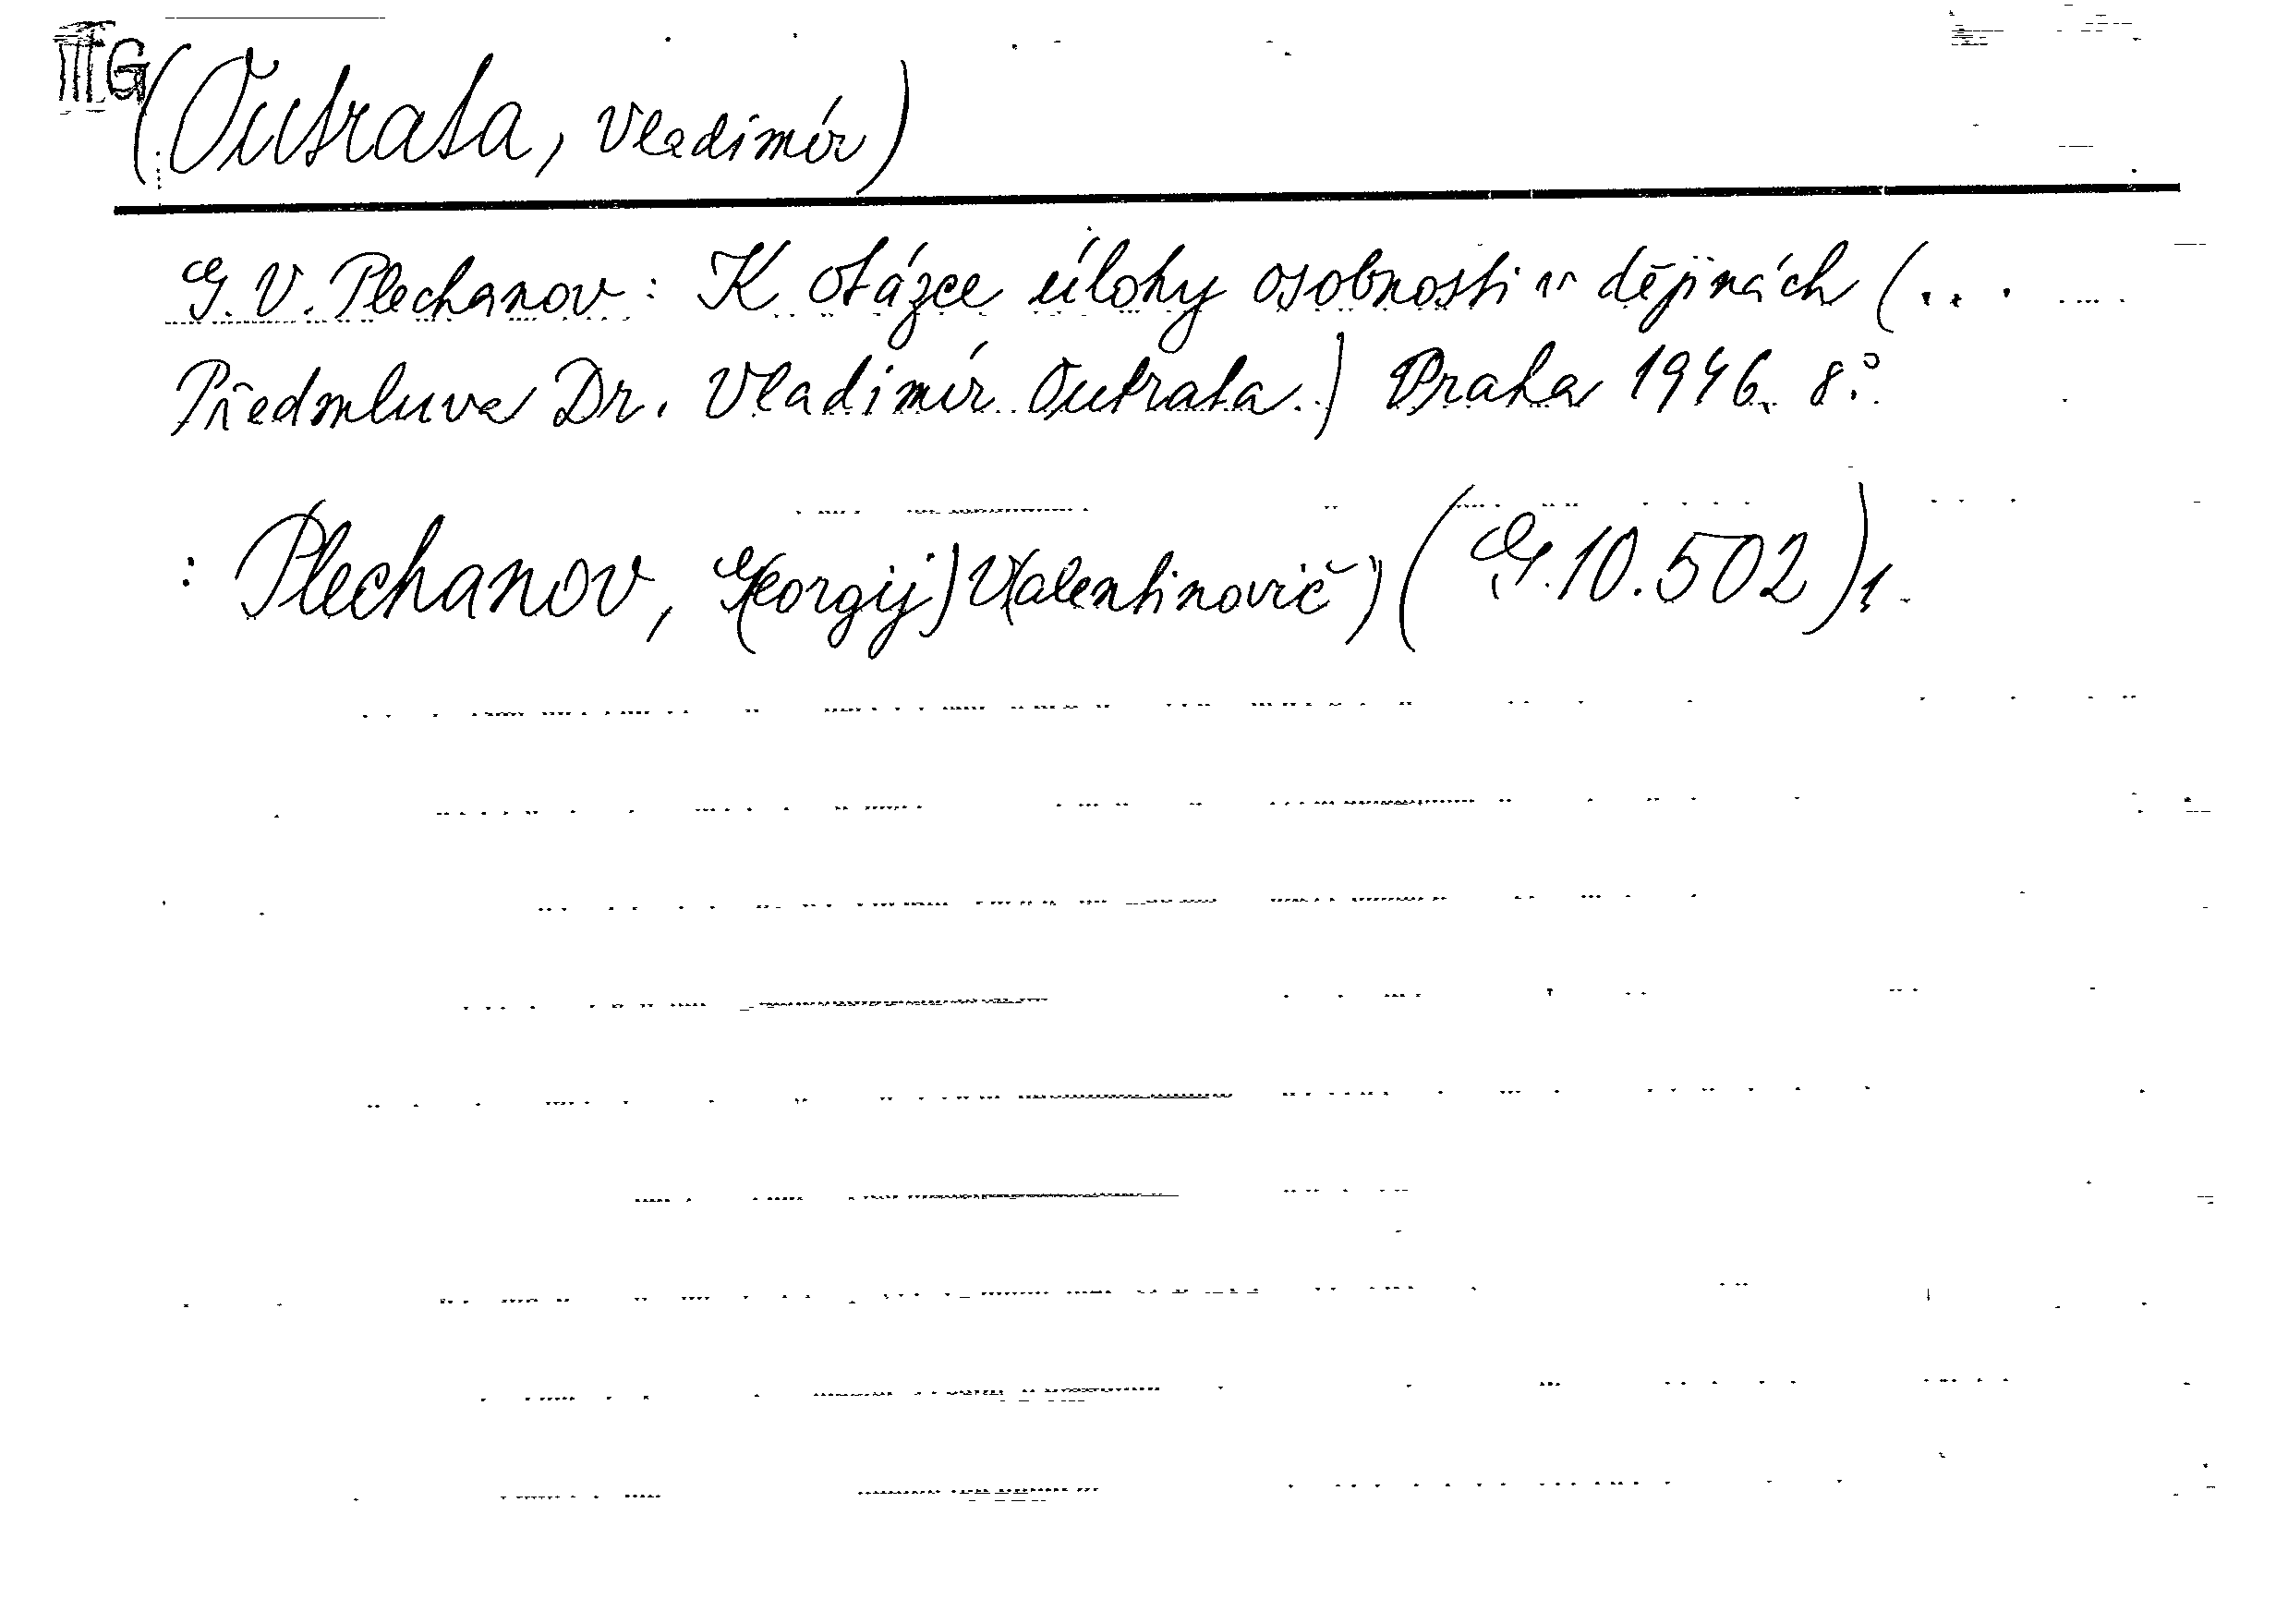 IIIG
(Outrata, Vladimír)
G. V. Plechanov: K otázce úlohy osobnosti v dějinách (...
Předmluva Dr. Vladimír Outrata.) Praha 1946. 8°.
: Plechanov, G(eorgij) V(alentinovič) (G.10.502)